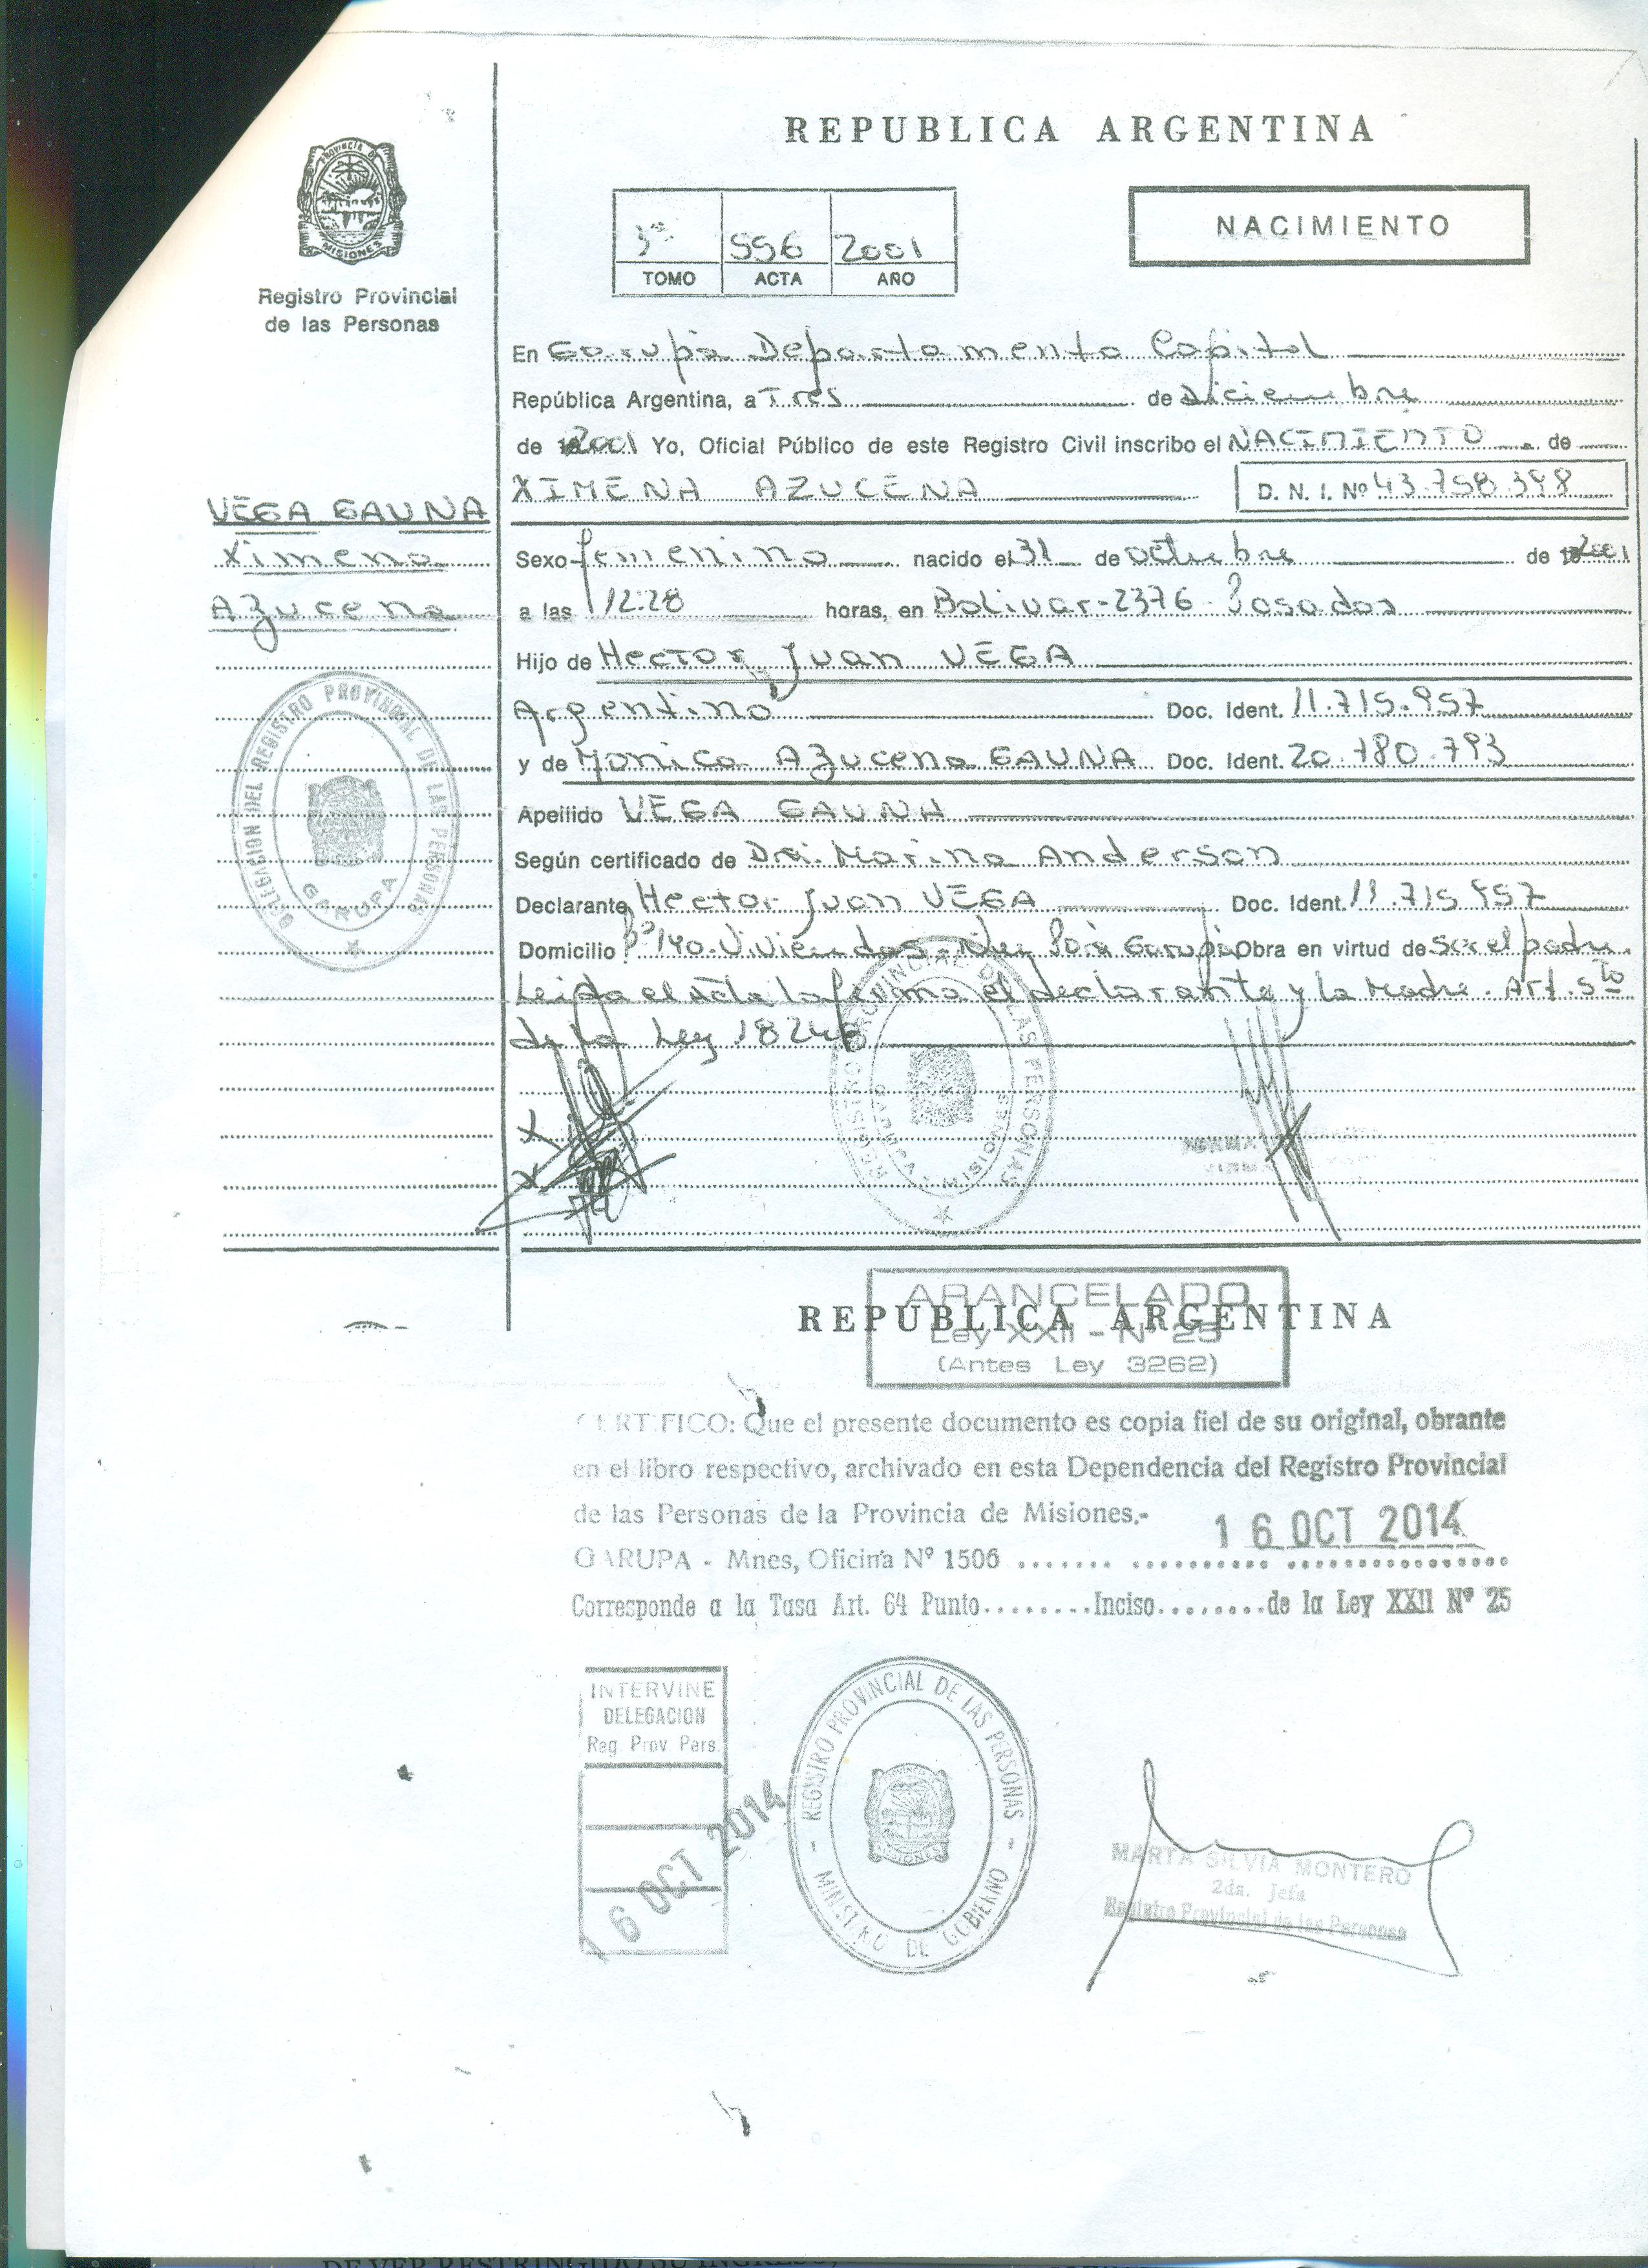 REPUBLICA ARGENTINA
PROVINCIA D MISIONES
Registro Provincial
de las Personas
556 2001
TOMO ACTA AÑO
NACIMIENTO
En Garupá Departamento Capital
República Argentina, a Tres de Diciembre
de 2001 Yo, Oficial Público de este Registro Civil inscribo el NACIMIENTO de
XIMENA AZUCENA D. N. I. Nº 43.758.398
VEGA GAUNA
Ximena
Azucena
Sexo femenino nacido el 31 de octubre de 2001
a las 12.28 horas, en Bolivar-2376-Posadas
Hijo de Hector Juan VEGA
Argentino Doc. Ident. 11.715.957
y de Monica Azucena GAUNA Doc. Ident. 20.780.793
Apellido VEGA GAUNA
Según certificado de Dra. Marina Anderson
Declarante Hector Juan VEGA Doc. Ident. 11.715.957
Domicilio 140 Viviendas Garupá Obra en virtud de ser el padre.
Leida el acta la firma el declarante y la Madre. Art. 5to
de la Ley 18248
DELEGACION DEL REGISTRO PROVINCIAL DE LAS PERSONAS
GARUPA
REGISTRO PROVINCIAL DE LAS PERSONAS
GARUPA MISIONES
NORMA
ARANCELADO
Ley XXII - Nº 25
(Antes Ley 3262)
REPUBLICA ARGENTINA
CERTIFICO: Que el presente documento es copia fiel de su original, obrante
en el libro respectivo, archivado en esta Dependencia del Registro Provincial
de las Personas de la Provincia de Misiones.-
16 OCT 2014
GARUPA - Mnes, Oficina Nº 1506 ....... .......... ................
Corresponde a la Tasa Art. 64 Punto........Inciso........de la Ley XXII Nº 25
INTERVINE
DELEGACION
Reg Prov Pers.
16 OCT 2014
REGISTRO PROVINCIAL DE LAS PERSONAS
- MINISTRO DE GOBIERNO -
MISIONES
MARTA SILVIA MONTERO
2da. Jefa
Registro Provincial de las Personas
DE VER RESTRINGIDO SU INGRESO,